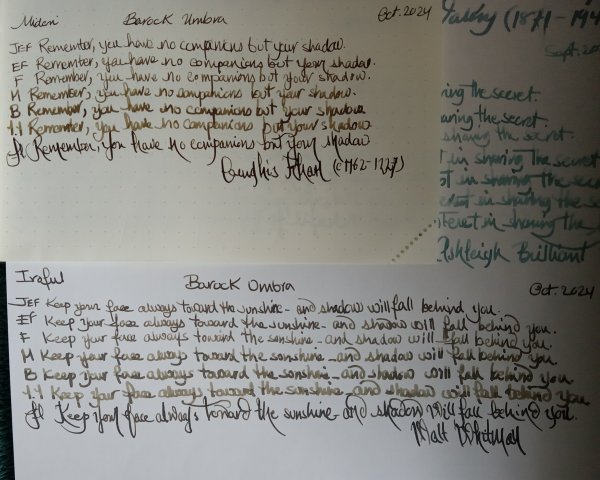 Midori Barock Umbra Oct. 2024
JEF Remember, you have no companions but your shadow.
EF Remember, you have no companions but your shadow.
F Remember, you have no companions but your shadow.
M Remember, you have no companions but your shadow.
B Remember, you have no companions but your shadow
1.1 Remember, you have no companions but your shadow
fl Remember, you have no companions but your shadow
Genghis Khan (c1162-1227)
(1871-194
Sept. 20
ring the secret.
aring the secret.
sharing the secret.
t in sharing the secret
st in sharing the secre
erest in sharing the se
terest in sharing the s
Ashleigh Brilliant
Iroful Barock Umbra Oct. 2024
JEF Keep your face always toward the sunshine - and shadow will fall behind you.
EF Keep your face always toward the sunshine - and shadow will fall behind you.
F Keep your face always toward the sunshine - and shadow will fall behind you.
M Keep your face always toward the sunshine - and shadow will fall behind you.
B Keep your face always toward the sunshine - and shadow will fall behind you.
1.1 Keep your face always toward the sunshine - and shadow will fall behind you
fl Keep your face always toward the sunshine - and shadow will fall behind you.
Walt Whitman